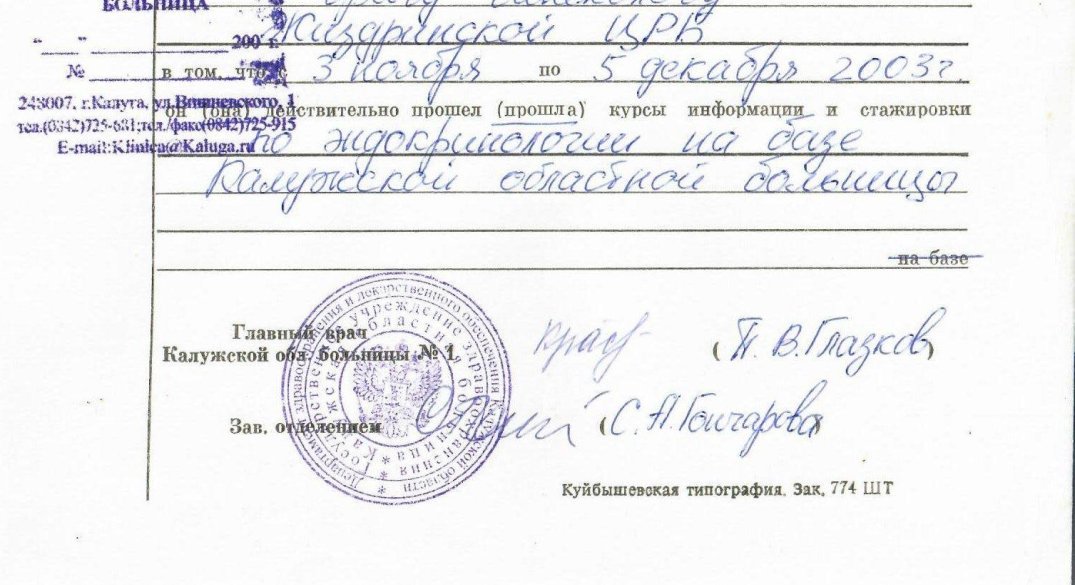 БОЛЬНИЦА
Жиздринской ЦРБ
"____" ____________ 200 г.
№ ____________ в том, что с 3 ноября по 5 декабря 2003г.
248007, г.Калуга, ул.Вишневского, 1
он (она) действительно прошел (прошла) курсы информации и стажировки
тел.(0842)725-631;тел./факс(0842)725-915
по эндокринологии на базе
E-mail:Klinica@Kaluga.ru
Калужской областной больницы
на базе
Главный врач
Калужской обл. больницы № 1.
( П. В. Глазков)
Зав. отделением
( С. А. Гончарова)
Департамент здравоохранения и лекарственного обеспечения Калужской области *
Государственное учреждение здравоохранения *
Калужская областная больница *
Куйбышевская типография. Зак. 774 ШТ